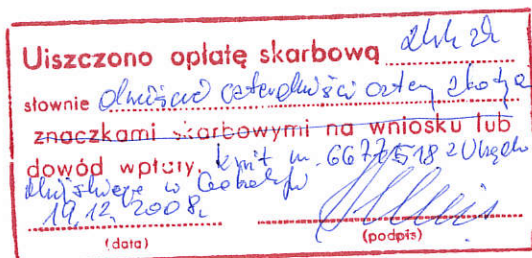 Uiszczono opłatę skarbową 244 zł
słownie dwieście czterdzieści cztery złote
znaczkami skarbowymi na wniosku lub
dowód wpłaty, kwit nr. z Urzędu
Miejskiego w
19.12.2008.
(data) (podpis)